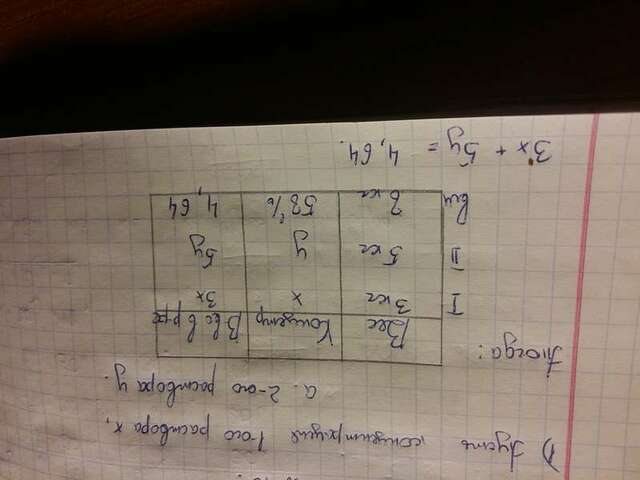 1) Пусть концентрация 1-ого раствора x,
а 2-ого раствора y.
Тогда:
Вес Концентр Вес в р-ре
I 3 кг x 3x
II 5 кг y 5y
8 кг 58% 4,64
3x + 5y = 4,64.